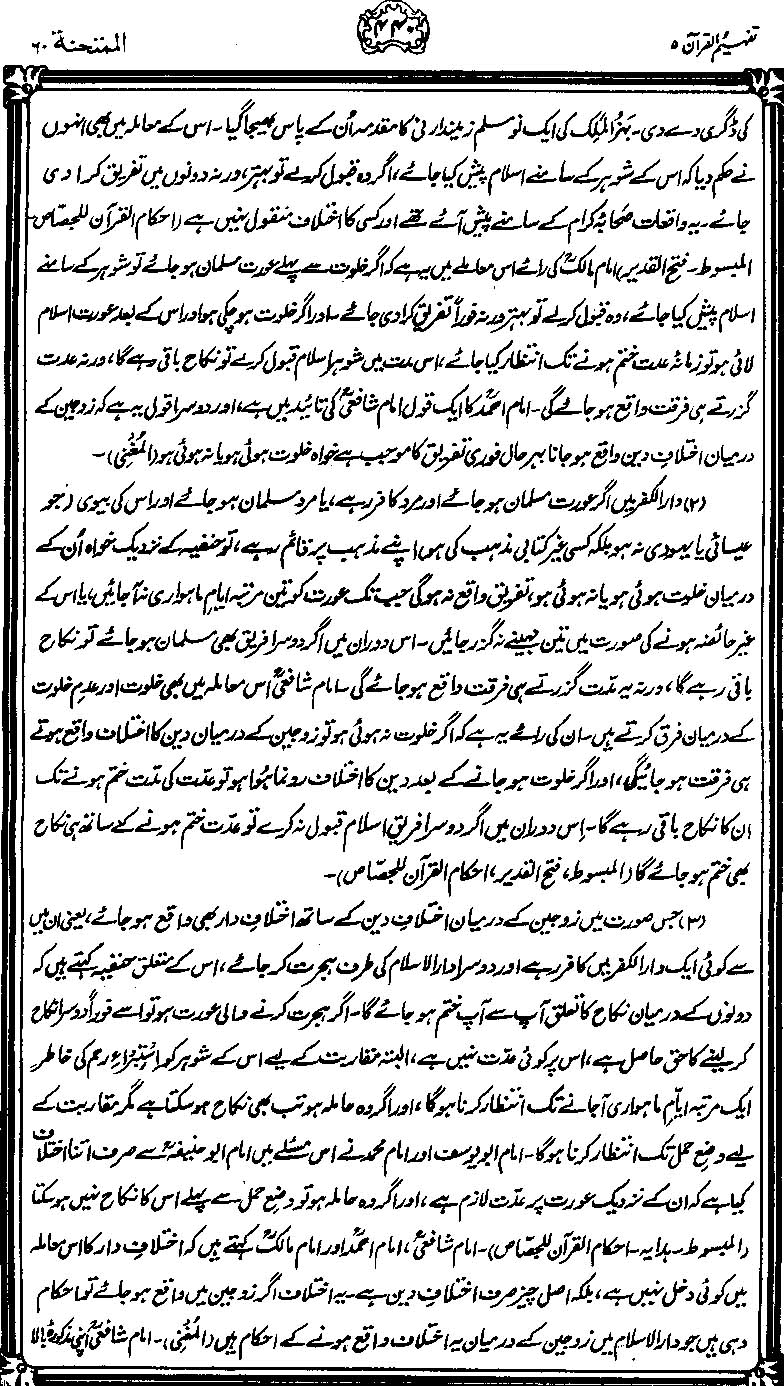 تفہیم القرآن ۵
۴۴۰
الممتحنۃ ۶۰
کی ڈگری دے دی۔ بہز الملک کی ایک نو مسلم زمیندارنی کا مقدمہ اُن کے پاس بھیجا گیا۔ اس کے معاملہ میں بھی انہوں
نے حکم دیا کہ اس کے شوہر کے سامنے اسلام پیش کیا جائے، اگر وہ قبول کرلے تو بہتر، ورنہ دونوں میں تفریق کرا دی
جائے۔ یہ واقعات صحابۂ کرام کے سامنے پیش آئے تھے اور کسی کا اختلاف منقول نہیں ہے (احکام القرآن للجصاص،
المبسوط۔ فتح القدیر) امام مالکؒ کی رائے اس معاملے میں یہ ہے کہ اگر خلوت سے پہلے عورت مسلمان ہو جائے تو شوہر کے سامنے
اسلام پیش کیا جائے، وہ قبول کرلے تو بہتر ورنہ فوراً تفریق کرادی جائے۔ اور اگر خلوت ہو چکی ہو اور اس کے بعد عورت اسلام
لائی ہو تو زمانۂ عدت ختم ہونے تک انتظار کیا جائے، اس مدت میں شوہر اسلام قبول کرلے تو نکاح باقی رہے گا، ورنہ عدت
گزرتے ہی فرقت واقع ہو جائے گی۔ امام احمدؒ کا ایک قول امام شافعیؒ کی تائید میں ہے، اور دوسرا قول یہ ہے کہ زوجین کے
درمیان اختلافِ دین واقع ہو جانا بہرحال فوری تفریق کا موجب ہے خواہ خلوت ہوئی ہو یا نہ ہوئی ہو (المُغنی)۔
(۲) دارالکفر میں اگر عورت مسلمان ہو جائے اور مرد کافر رہے، یا مرد مسلمان ہو جائے اور اس کی بیوی (جو
عیسائی یا یہودی نہ ہو بلکہ کسی غیر کتابی مذہب کی ہو) اپنے مذہب پر قائم رہے، تو حنفیہ کے نزدیک خواہ اُن کے
درمیان خلوت ہوئی ہو یا نہ ہوئی ہو، تفریق واقع نہ ہوگی جب تک عورت کو تین مرتبہ ایامِ ماہواری نہ آجائیں، یا اس کے
غیر حائضہ ہونے کی صورت میں تین مہینے نہ گزر جائیں۔ اس دوران میں اگر دوسرا فریق بھی مسلمان ہو جائے تو نکاح
باقی رہے گا، ورنہ یہ مدت گزرتے ہی فرقت واقع ہو جائے گی۔ امام شافعیؒ اس معاملہ میں بھی خلوت اور عدم خلوت
کے درمیان فرق کرتے ہیں۔ ان کی رائے یہ ہے کہ اگر خلوت نہ ہوئی ہو تو زوجین کے درمیان دین کا اختلاف واقع ہوتے
ہی فرقت ہو جائیگی، اور اگر خلوت ہو جانے کے بعد دین کا اختلاف رونما ہُوا ہو تو عدّت کی مدّت ختم ہونے تک
ان کا نکاح باقی رہے گا۔ اِس دوران میں اگر دوسرا فریق اسلام قبول نہ کرے تو عدّت ختم ہونے کے ساتھ ہی نکاح
بھی ختم ہو جائے گا (المبسوط، فتح القدیر، احکام القرآن للجصّاص)۔
(۳) جس صورت میں زوجین کے درمیان اختلافِ دین کے ساتھ اختلافِ دار بھی واقع ہو جائے، یعنی ان میں
سے کوئی ایک دارالکفر میں کافر رہے اور دوسرا دارالاسلام کی طرف ہجرت کر جائے، اس کے متعلق حنفیہ کہتے ہیں کہ
دونوں کے درمیان نکاح کا تعلق آپ سے آپ ختم ہو جائے گا۔ اگر ہجرت کرنے والی عورت ہو تو اسے فوراً دوسرا نکاح
کر لینے کا حق حاصل ہے، اس پر کوئی عدّت نہیں ہے، البتہ مقاربت کے لیے اس کے شوہر کو استبراءِ رحم کی خاطر
ایک مرتبہ ایّامِ ماہواری آجانے تک انتظار کرنا ہوگا، اور اگر وہ حاملہ ہو تب بھی نکاح ہو سکتا ہے مگر مقاربت کے
لیے وضع حمل تک انتظار کرنا ہوگا۔ امام ابو یوسف اور امام محمد نے اس مسئلے میں امام ابو حنیفہؒ سے صرف اتنا اختلاف
کیا ہے کہ ان کے نزدیک عورت پر عدّت لازم ہے، اور اگر وہ حاملہ ہو تو وضع حمل سے پہلے اس کا نکاح نہیں ہو سکتا
(المبسوط۔ ہدایہ۔ احکام القرآن للجصّاص)۔ امام شافعیؒ، امام احمدؒ اور امام مالکؒ کہتے ہیں کہ اختلافِ دار کا اس معاملہ
میں کوئی دخل نہیں ہے، بلکہ اصل چیز صرف اختلافِ دین ہے۔ یہ اختلاف اگر زوجین میں واقع ہو جائے تو احکام
وہی ہیں جو دارالاسلام میں زوجین کے درمیان یہ اختلاف واقع ہونے کے احکام ہیں (المُغنی)۔ امام شافعیؒ اپنی مذکورۂ بالا